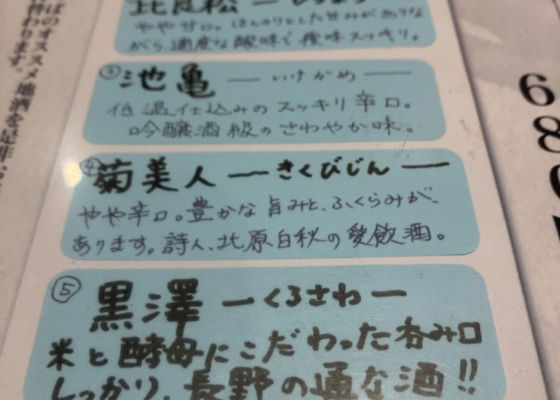 比良松
やや甘口。ほんのりとした甘みがありな
がら、適度な酸味で後味スッキリ。
③池亀 ― いけかめ ―
低温仕込みのスッキリ辛口。
吟醸酒級のさわやか味。
④菊美人 ― きくびじん ―
やや辛口。豊かな旨みと、ふくらみが、
あります。詩人、北原白秋の愛飲酒。
⑤黒澤 ― くろさわ ―
米と酵母にこだわった呑み口
しっかり、長野の通な酒!!
オススメ地酒を是非
替わります。
6
8